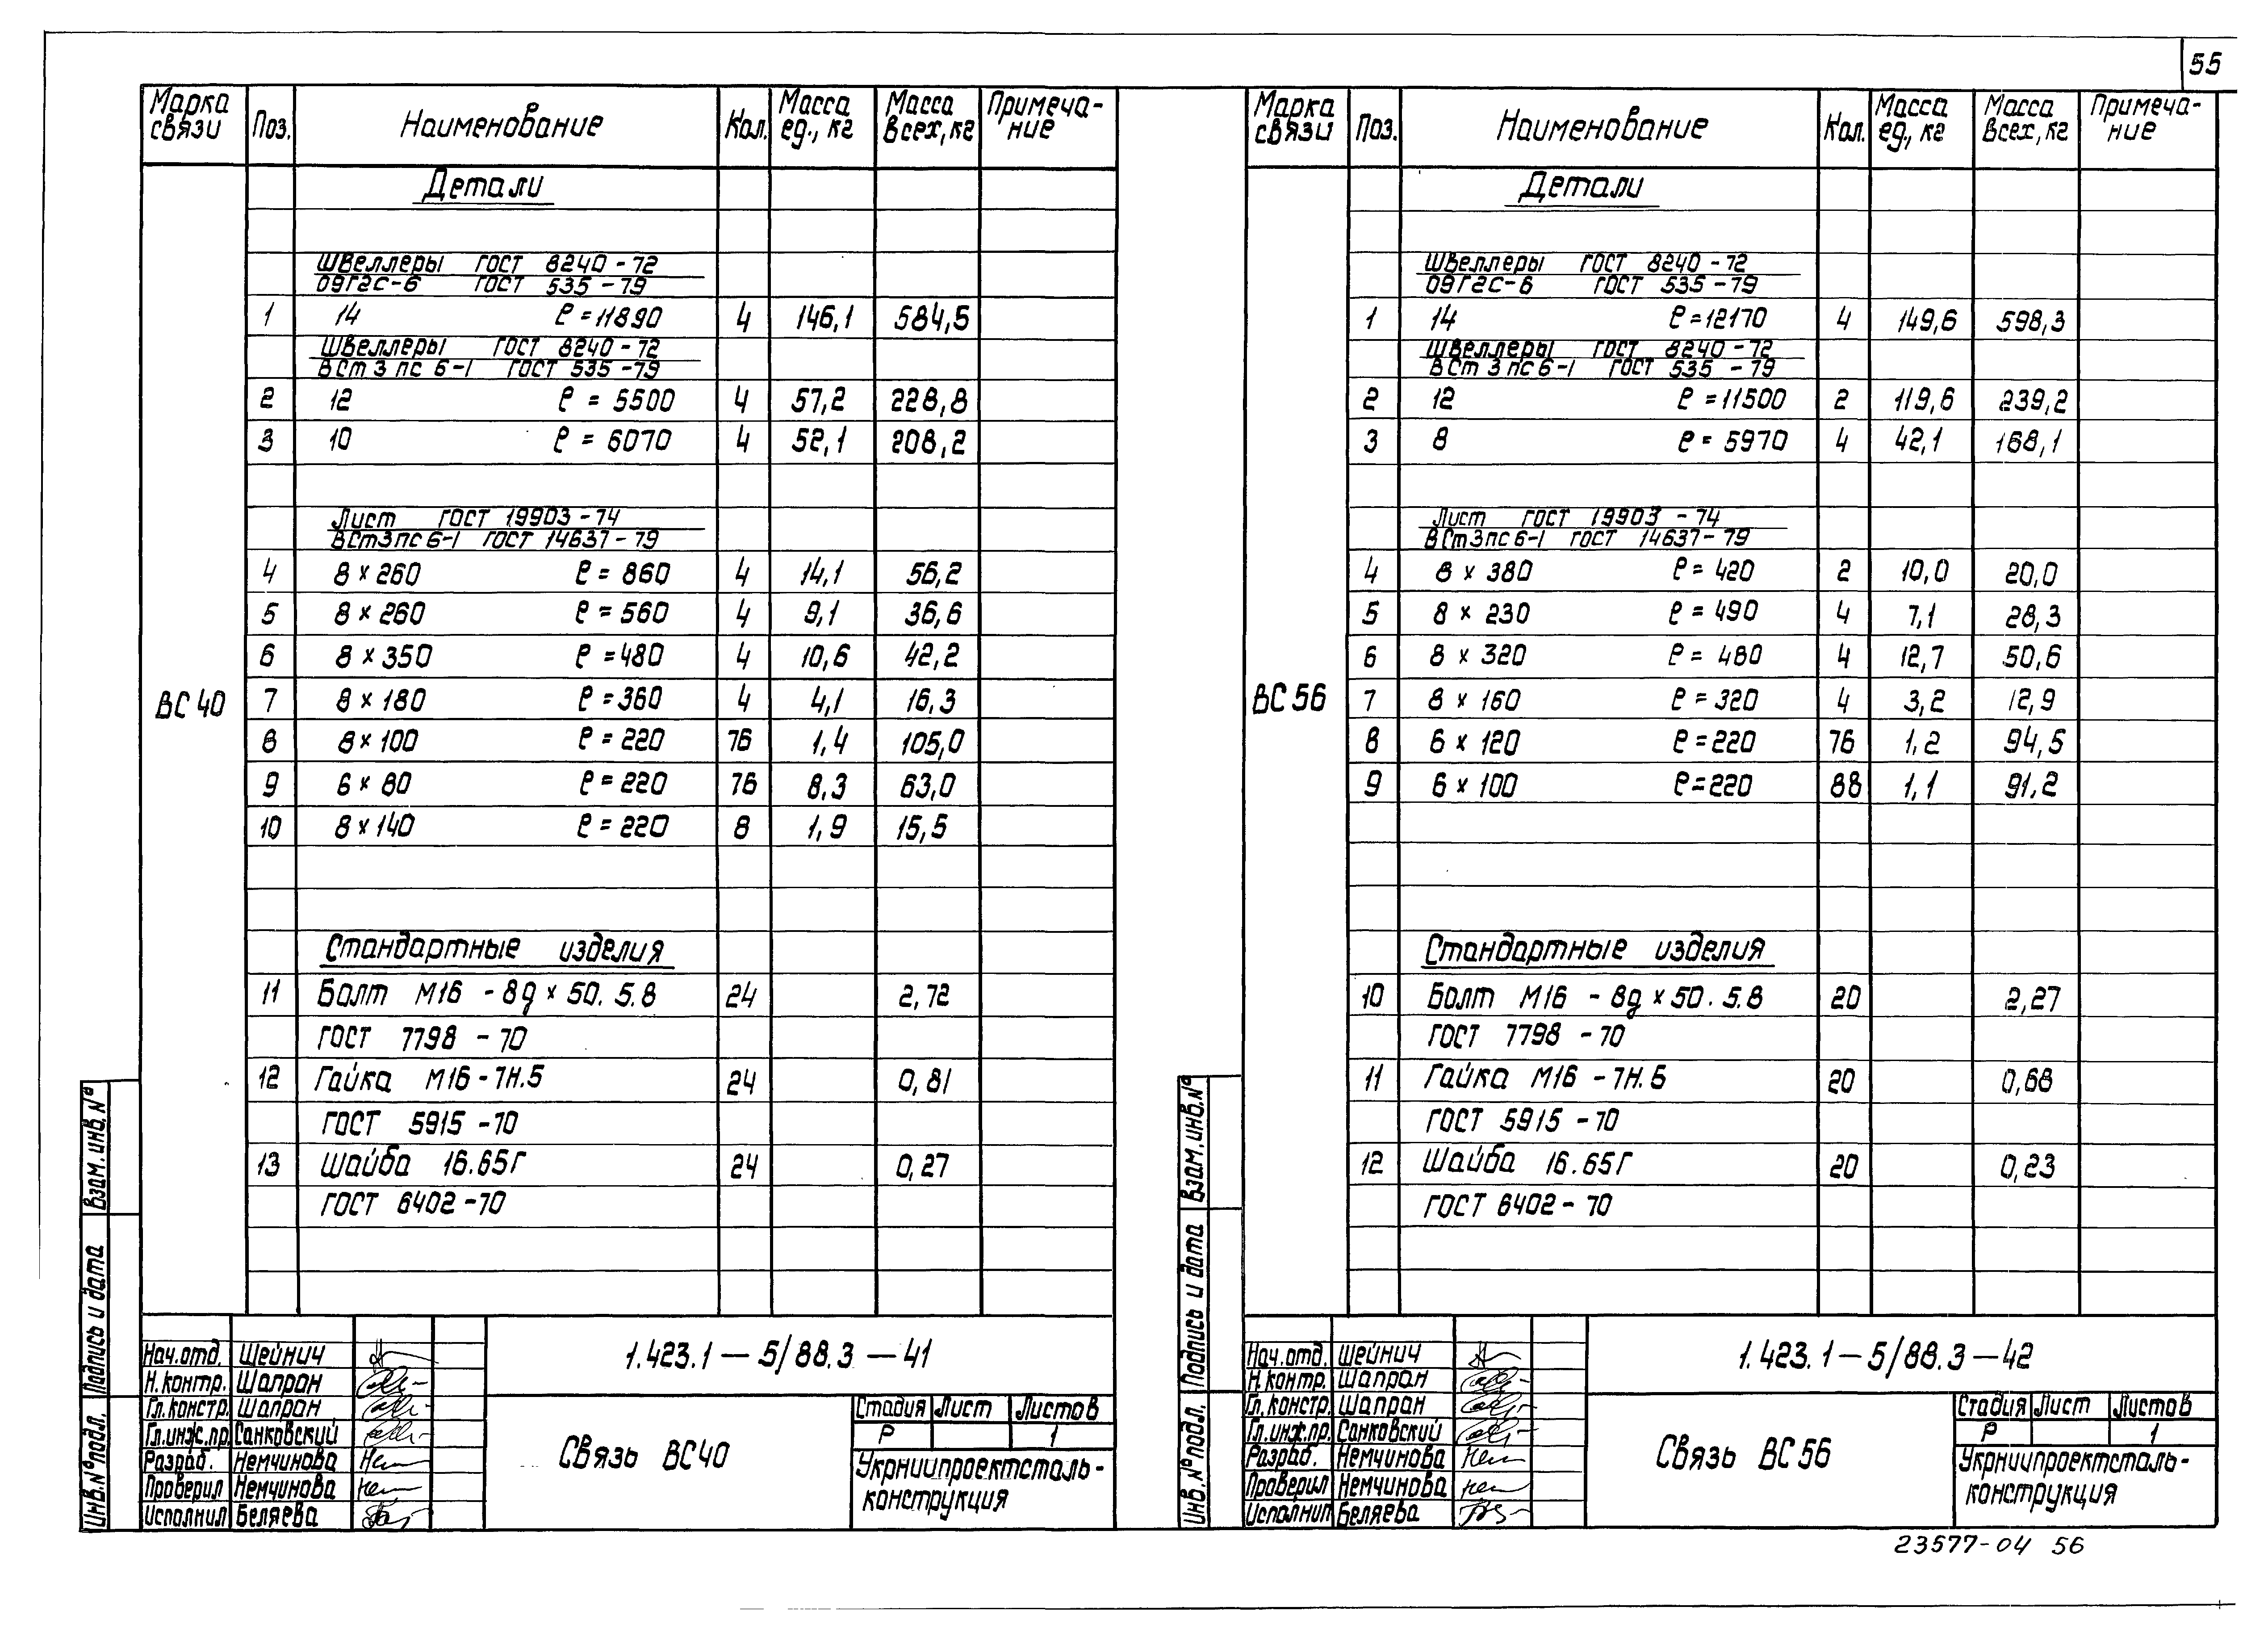 55
Марка связи Поз. Наименование Кол. Масса ед., кг Масса всех, кг Примеча-ние
Детали
Швеллеры ГОСТ 8240-72
09Г2С-6 ГОСТ 535-79
1 14 ℓ=11890 4 146,1 584,5
Швеллеры ГОСТ 8240-72
ВСт3пс6-1 ГОСТ 535-79
2 12 ℓ=5500 4 57,2 228,8
3 10 ℓ=6070 4 52,1 208,2
Лист ГОСТ 19903-74
ВСт3пс6-1 ГОСТ 14637-79
4 8×260 ℓ=860 4 14,1 56,2
5 8×260 ℓ=560 4 9,1 36,6
6 8×350 ℓ=480 4 10,6 42,2
ВС40 7 8×180 ℓ=360 4 4,1 16,3
8 8×100 ℓ=220 76 1,4 105,0
9 6×80 ℓ=220 76 8,3 63,0
10 8×140 ℓ=220 8 1,9 15,5
Стандартные изделия
11 Болт М16-8g×50.5.8 24 2,72
ГОСТ 7798-70
12 Гайка М16-7Н.5 24 0,81
ГОСТ 5915-70
13 Шайба 16.65Г 24 0,27
ГОСТ 6402-70
Взам. инв. №
Подпись и дата
Инв. № подл.
Нач. отд. Шейнич
Н. контр. Шапран
Гл. констр. Шапран
Гл. инж. пр. Санковский
Разраб. Немчинова
Проверил Немчинова
Исполнил Беляева
1.423.1-5/88.3-41
Связь ВС40
Стадия Лист Листов
Р 1
Укрниипроектсталь-
конструкция
Марка связи Поз. Наименование Кол. Масса ед., кг Масса всех, кг Примеча-ние
Детали
Швеллеры ГОСТ 8240-72
09Г2С-6 ГОСТ 535-79
1 14 ℓ=12170 4 149,6 598,3
Швеллеры ГОСТ 8240-72
ВСт3пс6-1 ГОСТ 535-79
2 12 ℓ=11500 2 119,6 239,2
3 8 ℓ=5970 4 42,1 168,1
Лист ГОСТ 19903-74
ВСт3пс6-1 ГОСТ 14637-79
4 8×380 ℓ=420 2 10,0 20,0
5 8×230 ℓ=490 4 7,1 28,3
6 8×320 ℓ=480 4 12,7 50,6
ВС56 7 8×160 ℓ=320 4 3,2 12,9
8 6×120 ℓ=220 76 1,2 94,5
9 6×100 ℓ=220 88 1,1 91,2
Стандартные изделия
10 Болт М16-8g×50.5.8 20 2,27
ГОСТ 7798-70
11 Гайка М16-7Н.5 20 0,68
ГОСТ 5915-70
12 Шайба 16.65Г 20 0,23
ГОСТ 6402-70
Взам. инв. №
Подпись и дата
Инв. № подл.
Нач. отд. Шейнич
Н. контр. Шапран
Гл. констр. Шапран
Гл. инж. пр. Санковский
Разраб. Немчинова
Проверил Немчинова
Исполнил Беляева
1.423.1-5/88.3-42
Связь ВС56
Стадия Лист Листов
Р 1
Укрниипроектсталь-
конструкция
23577-04 56